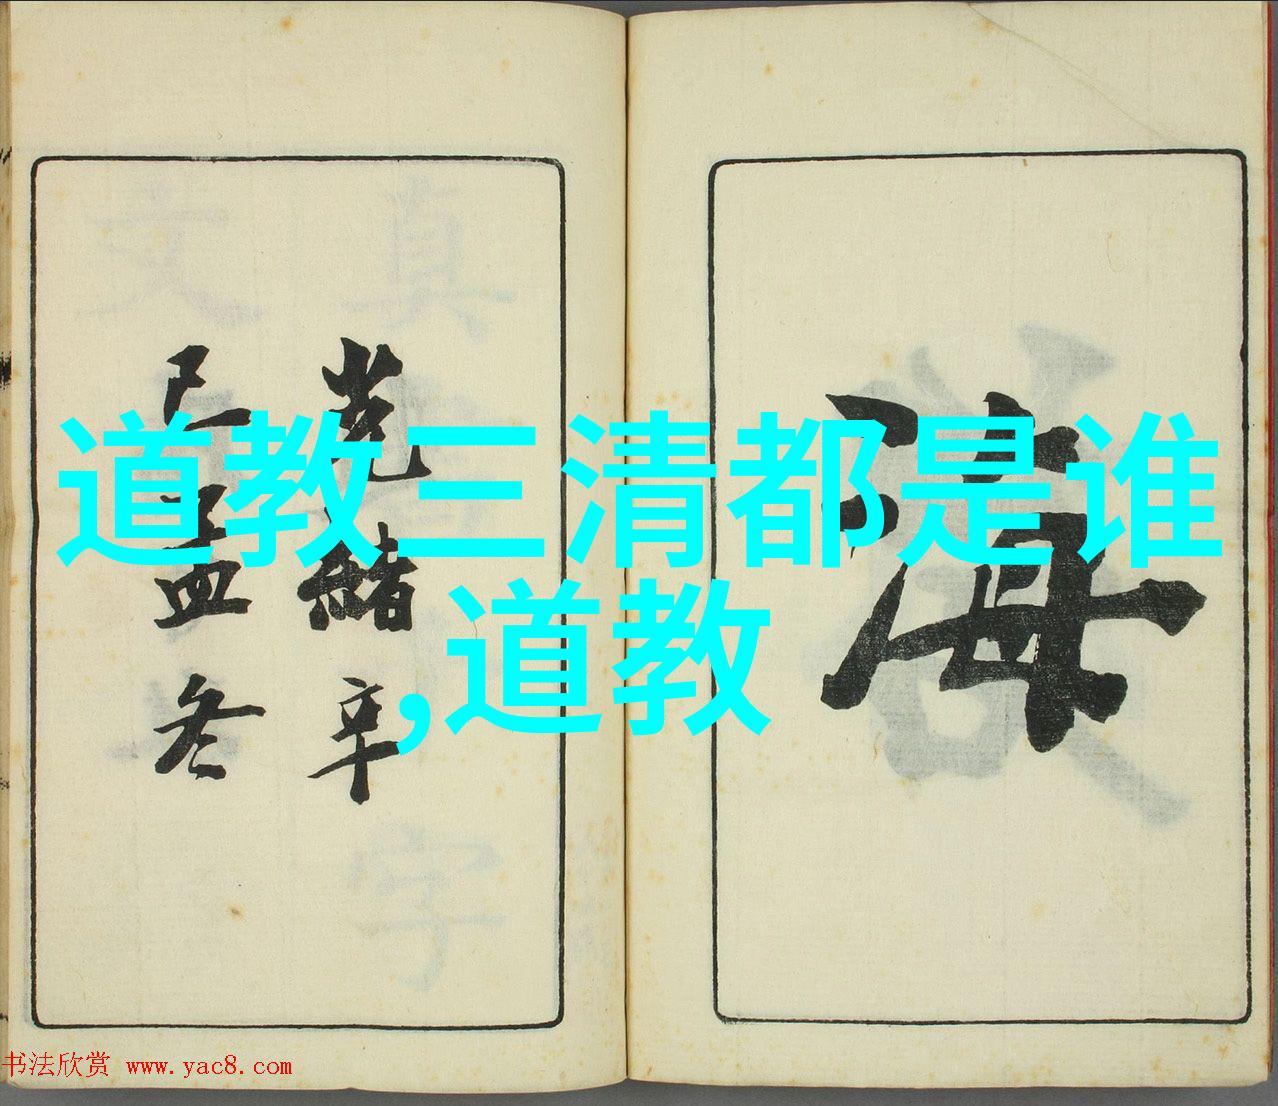 道教三清都是谁
,道教
海
光绪辛
已孟冬
书法欣赏 www.yac8.com